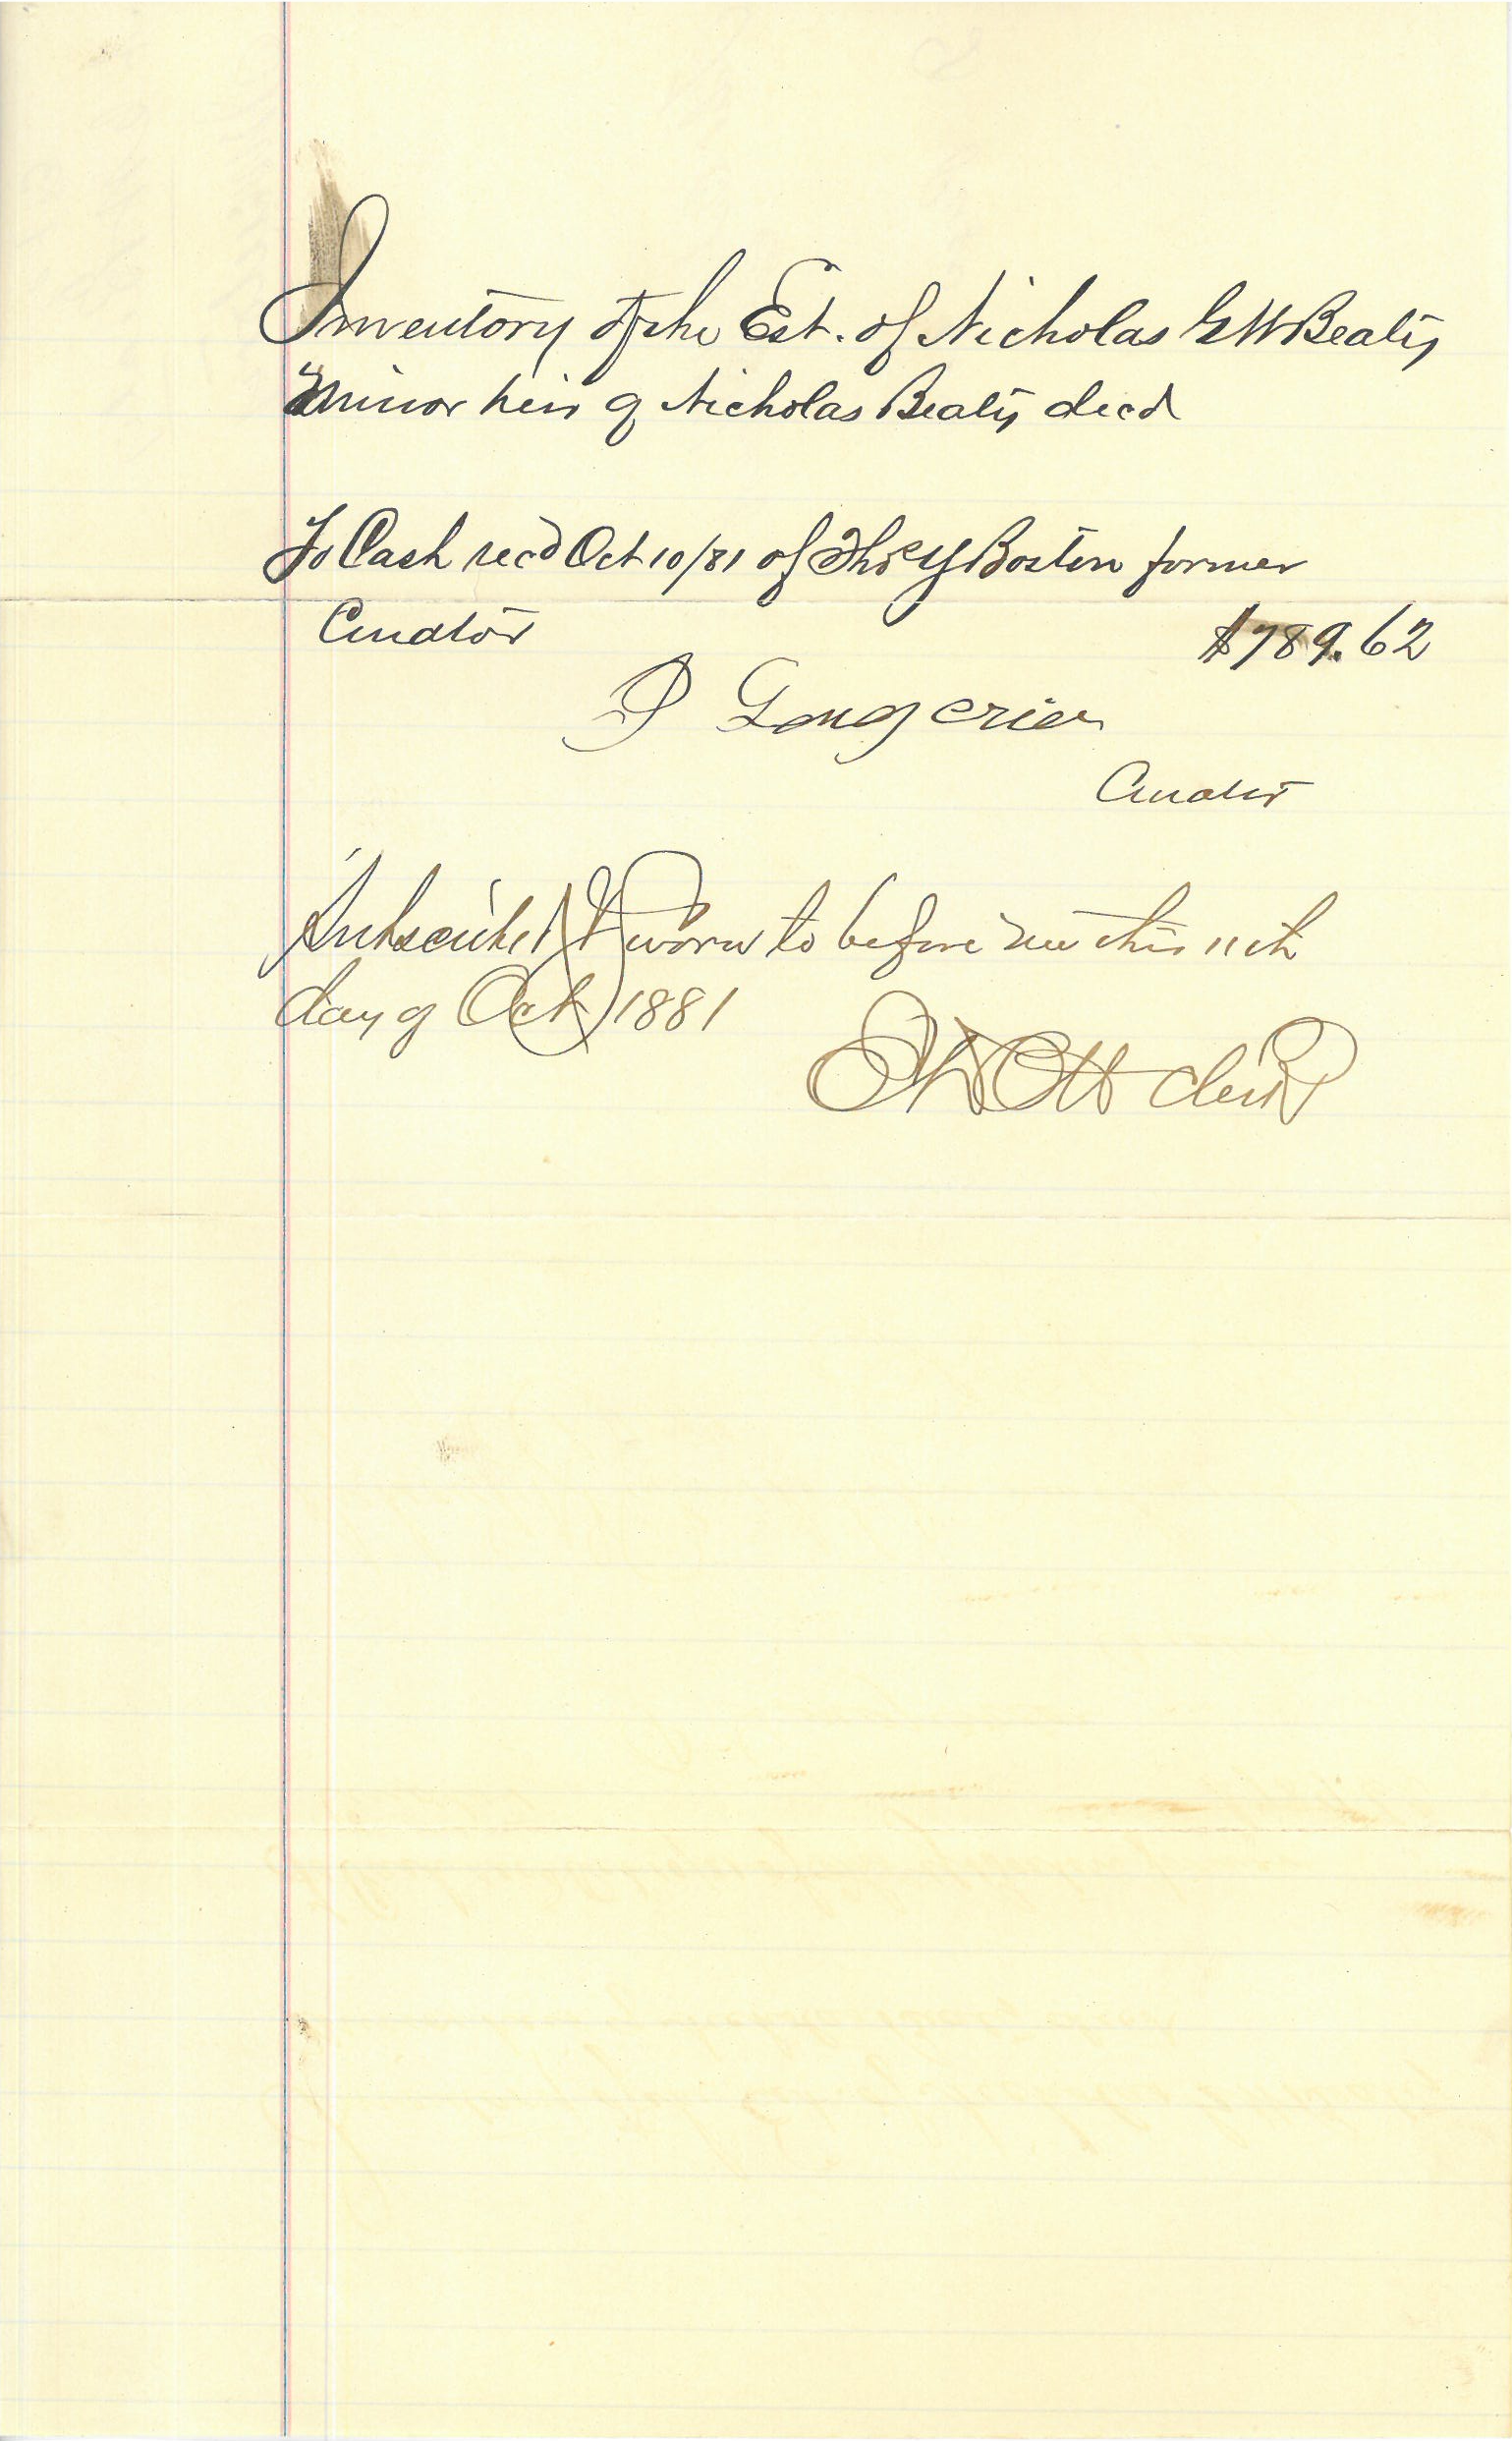 Inventory of the Est. of Nicholas G W Beaty
Minor heir of Nicholas Beaty decd
To Cash recd Oct 10/81 of Thos Y Boston former
Curator $789.62
Curator
Subscribed & Sworn to before me this 11th
day of Oct 1881
Ott Clerk